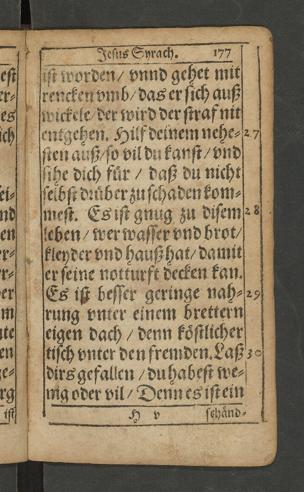 Jesus Syrach. 177
ist worden / vnnd gehet mit
rencken vmb / das er sich auß
wickele / der wird der straf nit
entgehen. Hilf deinem nehe- 27
sten auß / so vil du kanst / vnd
sihe dich für / daß du nicht
selbst drüber zu schaden kom-
mest. Es ist gnug zu disem 28
leben / wer wasser vnd brot /
kleyder vnd hauß hat / damit
er seine notturft decken kan.
Es ist besser geringe nah- 29
rung vnter einem brettern
eigen dach / denn köstlicher
tisch vnter den fremden. Laß 30
dirs gefallen / du habest we-
nig oder vil / Denn es ist ein
H v schänd-